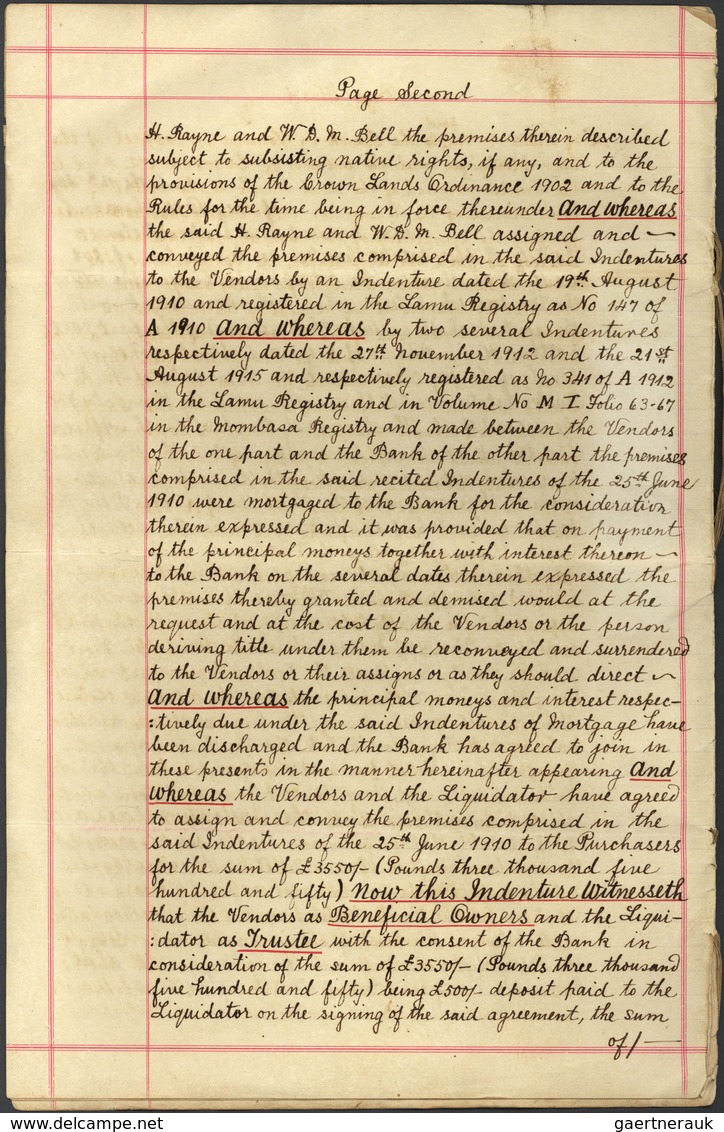 Page Second
H. Rayne and W. D. M. Bell the premises therein described
subject to subsisting native rights, if any, and to the
provisions of the Crown Lands Ordinance 1902 and to the
Rules for the time being in force thereunder And whereas
the said H. Rayne and W. D. M. Bell assigned and —
conveyed the premises comprised in the said Indentures
to the Vendors by an Indenture dated the 19th August
1910 and registered in the Lamu Registry as No 147 of
A 1910 And whereas by two several Indentures
respectively dated the 27th November 1912 and the 21st
August 1915 and respectively registered as No 341 of A 1912
in the Lamu Registry and in Volume No M I Folio 63-67
in the Mombasa Registry and made between the Vendors
of the one part and the Bank of the other part the premises
comprised in the said recited Indentures of the 25th June
1910 were mortgaged to the Bank for the consideration
therein expressed and it was provided that on payment
of the principal moneys together with interest thereon —
to the Bank on the several dates therein expressed the
premises thereby granted and demised would at the
request and at the cost of the Vendors or the person
deriving title under them be reconveyed and surrendered
to the Vendors or their assigns or as they should direct ~
And whereas the principal moneys and interest respec-
:tively due under the said Indentures of Mortgage have
been discharged and the Bank has agreed to join in
these presents in the manner hereinafter appearing And
whereas the Vendors and the Liquidator have agreed
to assign and convey the premises comprised in the
said Indentures of the 25th June 1910 to the Purchasers
for the sum of £3550/- (Pounds three thousand five
hundred and fifty) Now this Indenture Witnesseth
that the Vendors as Beneficial Owners and the Liqui-
:dator as Trustee with the consent of the Bank in
consideration of the sum of £3550/- (Pounds three thousand
five hundred and fifty) being £500/- deposit paid to the
Liquidator on the signing of the said agreement, the sum
of/—
gaertnerauk